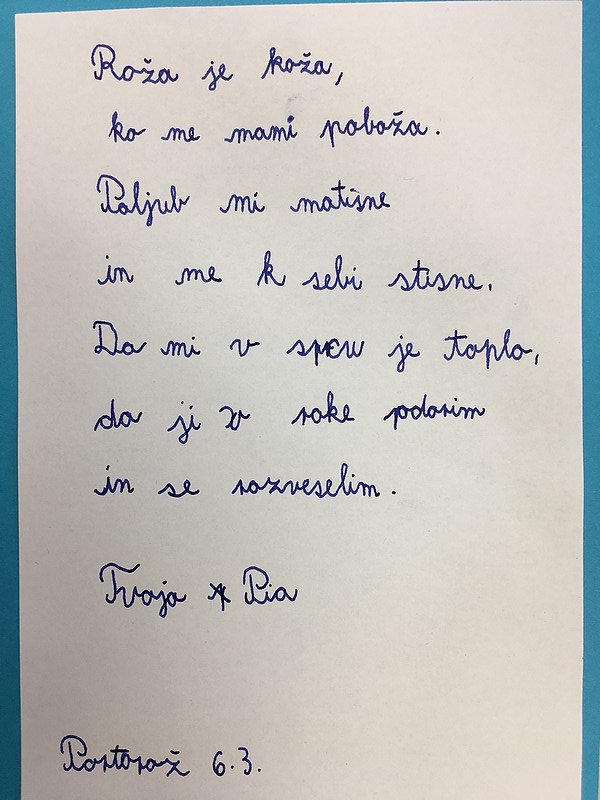 Roža je koža,
ko me mami poboža.
Poljub mi matisne
in me k sebi stisne.
Da mi v srcu je toplo,
da ji v roke podarim
in se razveselim.
Tvoja Pia
Portorož 6.3.